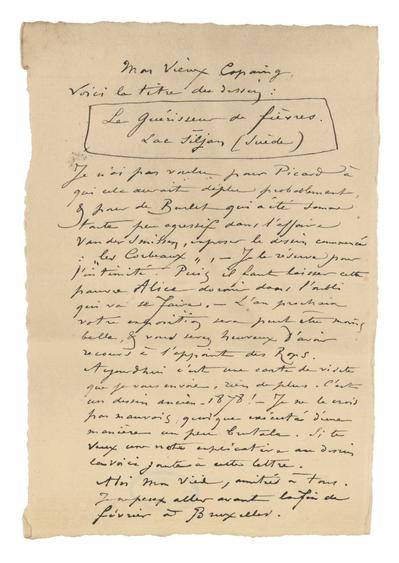 Mon Vieux Copaing,
Voici le titre des dessin :
Le Guérisseur de fièvres.
Lac Siljan (Suède)
Je n'ai pas voulu pour Picard à
qui cela aurait déplu probablement,
& pour de Burlet qui a été somme
toute peu agressif dans l'affaire
Van der Smissen, exposer le dessin commencé
: "Les Corbeaux", — Je le réserve pour
l'intimité — Puis il faut laisser cette
pauvre Alice dormir dans l'oubli
qui va se faire. — L'an prochain
votre exposition sera peut être moins
belle, & vous serez heureux d'avoir
recours à l'appoint des Rops.
Aujourd'hui c'est une carte de visite
que je vous envoie, rien de plus. C'est
un dessin ancien - 1878! — Je ne le crois
pas mauvais, quoique exécuté d'une
manière un peu brutale. Si tu
veux une note explicative au dessin
la voici jointe à cette lettre.
mon Vieux, amitiés à tous.
Je ne peux aller avant la fin de
février à Bruxelles.